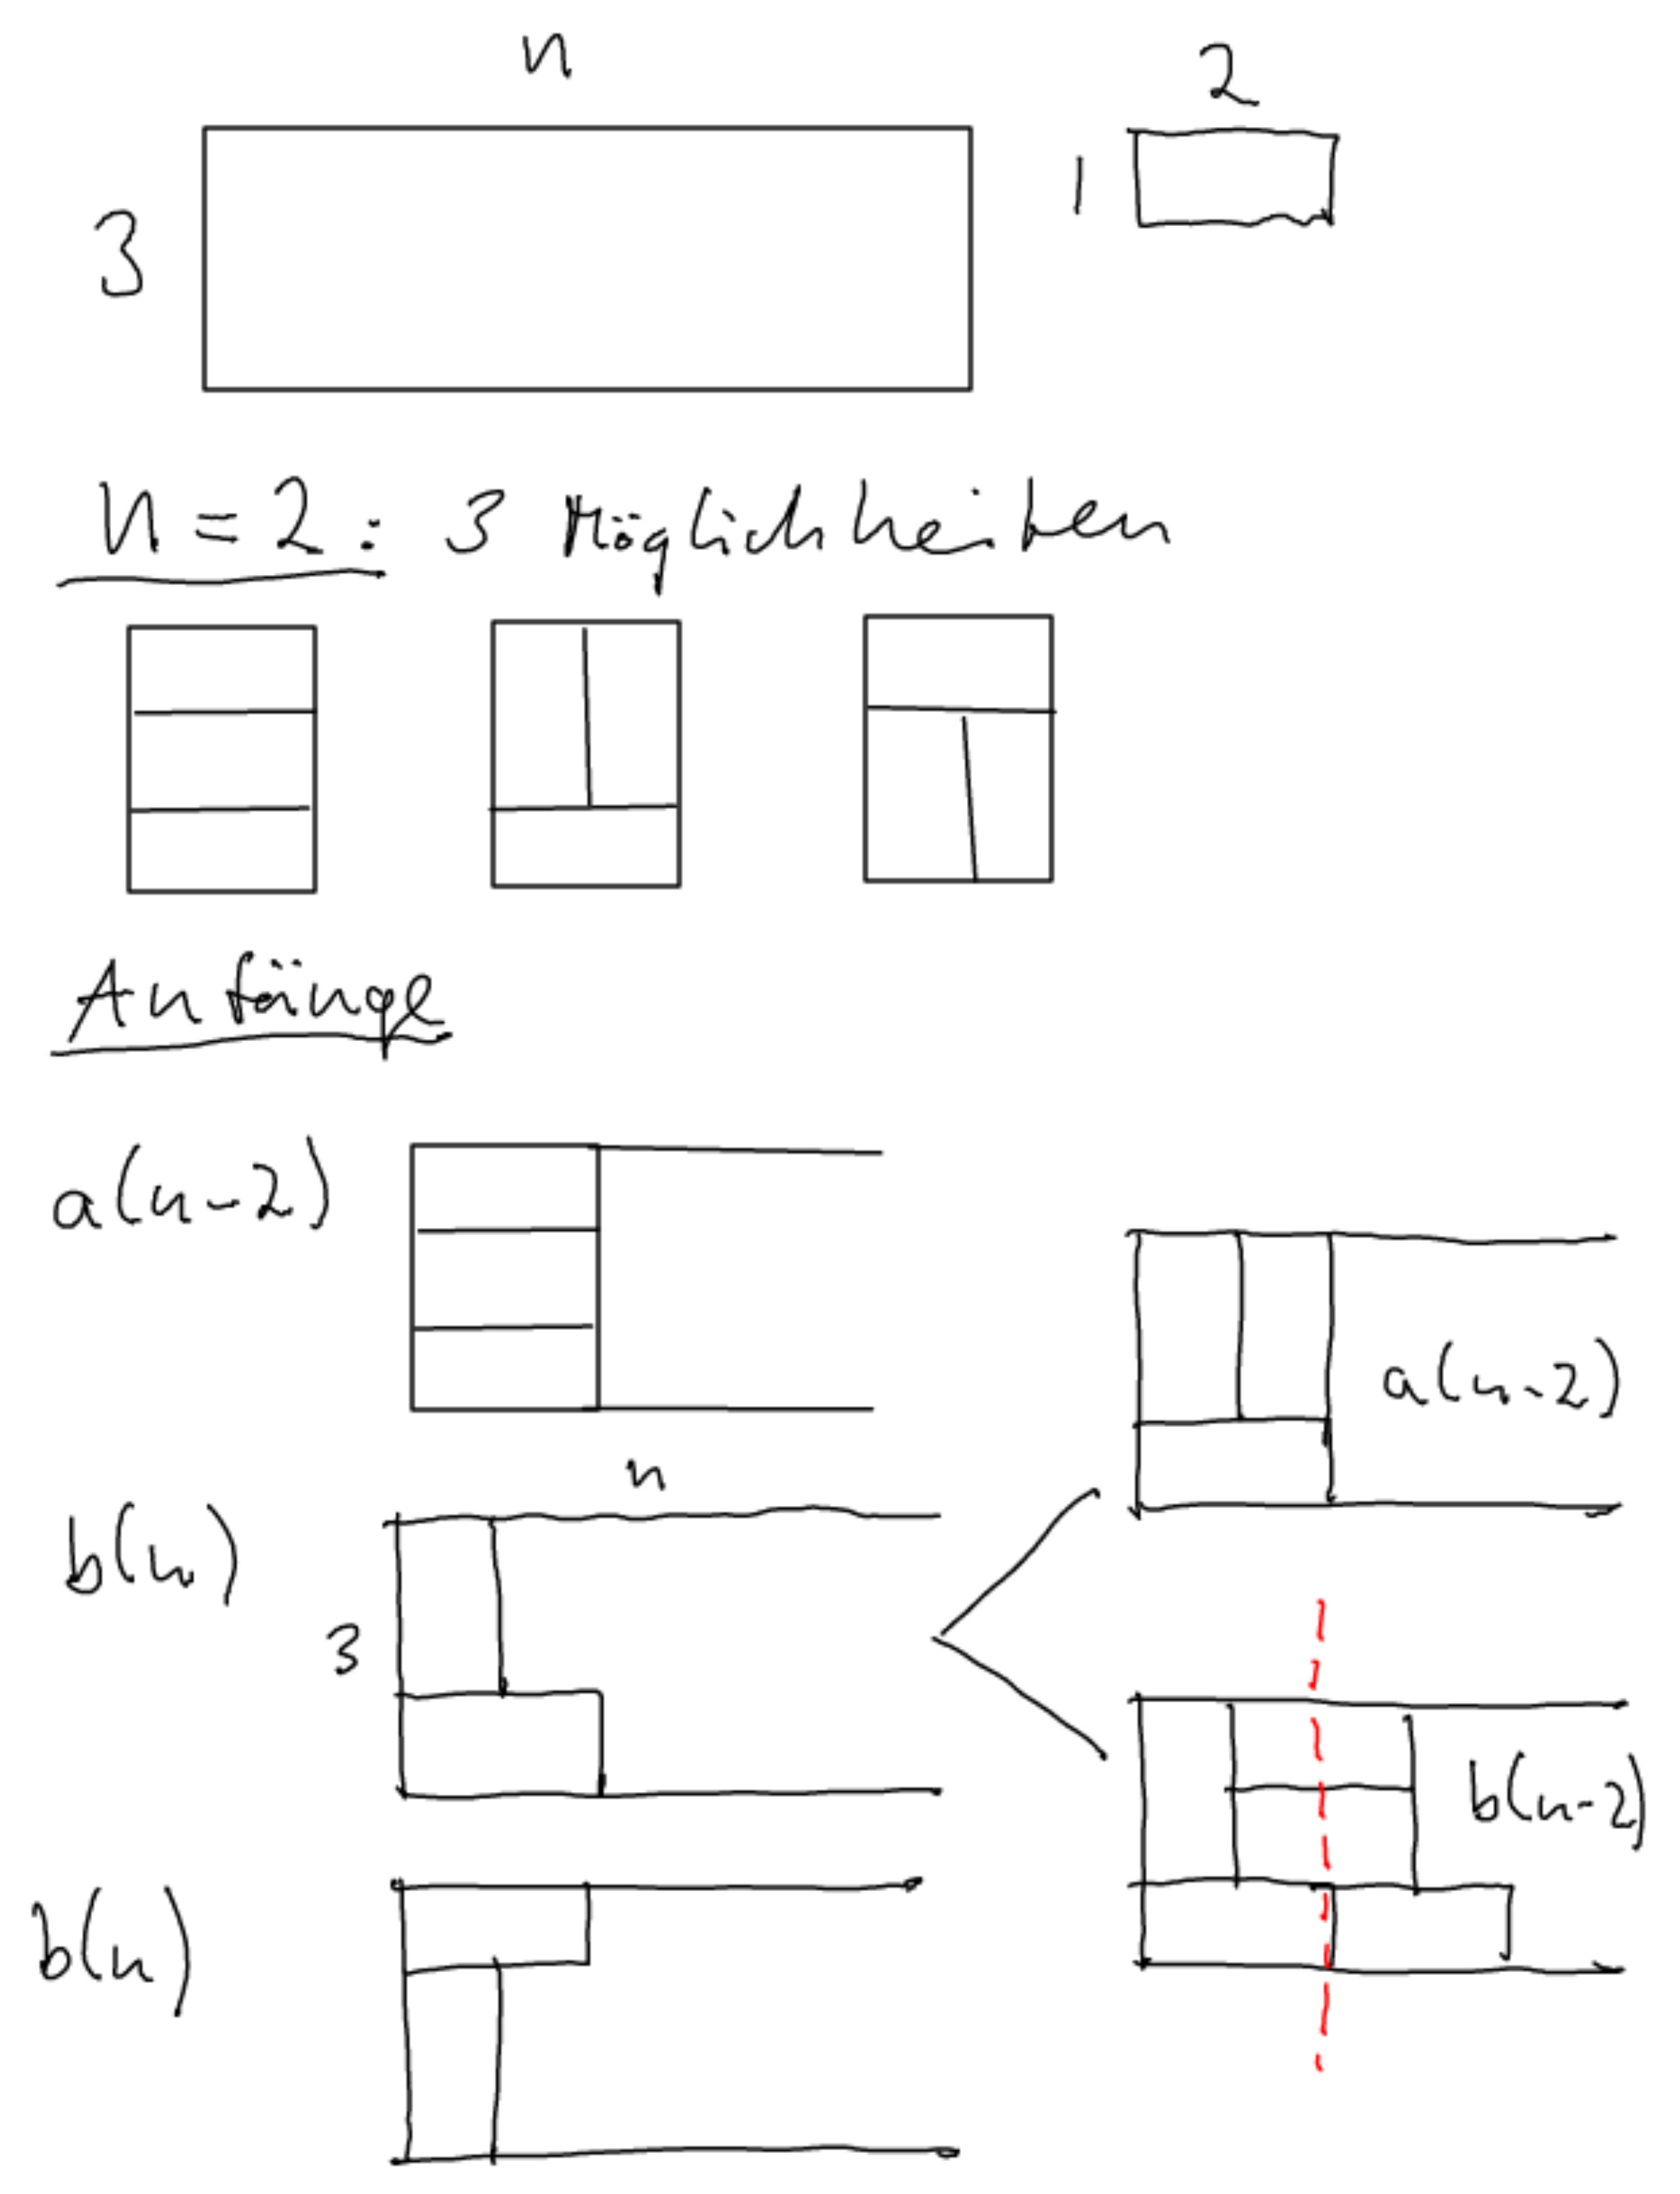 n
2
3
1
n = 2 : 3 Möglichkeiten
Anfänge
a(n-2)
a(n-2)
n
b(n)
3
b(n-2)
b(n)